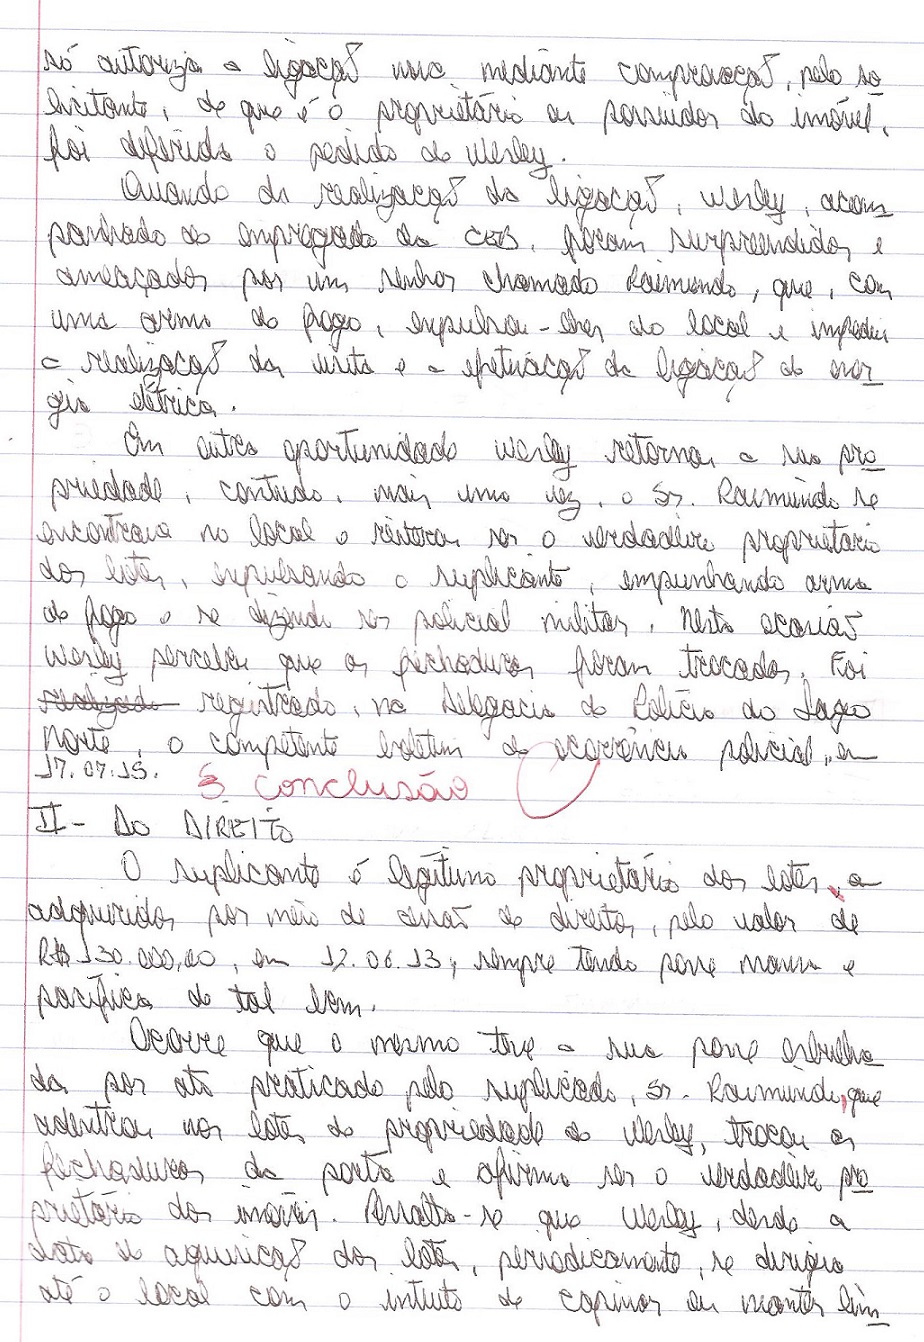 só autoriza a ligação uma mediante comprovação, pelo so
licitante, de que é o proprietário ou possuidor do imóvel,
foi deferido o pedido de Wesley.
Quando da realização da ligação, Wesley, acom
panhado do empregado da CEB, foram surpreendidos e
ameaçados por um senhor chamado Raimundo, que, com
uma arma de fogo, expulsou-lhes do local e impediu
a realização da visita e a efetuação da ligação de ener
gia elétrica.
Em outra oportunidade Wesley retornou a sua pro
priedade, contudo, mais uma vez, o Sr. Raimundo se
encontrava no local e reiterou ser o verdadeiro proprietário
dos lotes, expulsando o suplicante, empunhando arma
de fogo e se dizendo ser policial militar. Nesta ocasião
Wesley percebeu que as fechaduras foram trocadas. Foi
realizado registrado, na Delegacia de Polícia do Lago
Norte, o competente boletim de ocorrência policial, em
17.07.15.
S Conclusão
II - DO DIREITO
O suplicante é legítimo proprietário dos lotes, a
adquiridos por meio de cessão de direitos, pelo valor de
R$ 130.000,00, em 12.06.13, sempre tendo posse mansa e
pacífica de tal bem.
Ocorre que o mesmo teve a sua posse esbulha
da por ato praticado pelo suplicado, Sr. Raimundo, que
adentrou nos lotes de propriedade de Wesley, trocou as
fechaduras da porta e afirma ser o verdadeiro pro
prietário dos imóveis. Ressalta-se que Wesley, desde a
data de aquisição dos lotes, periodicamente, se dirigia
até o local com o intuito de capinar ou manter lim